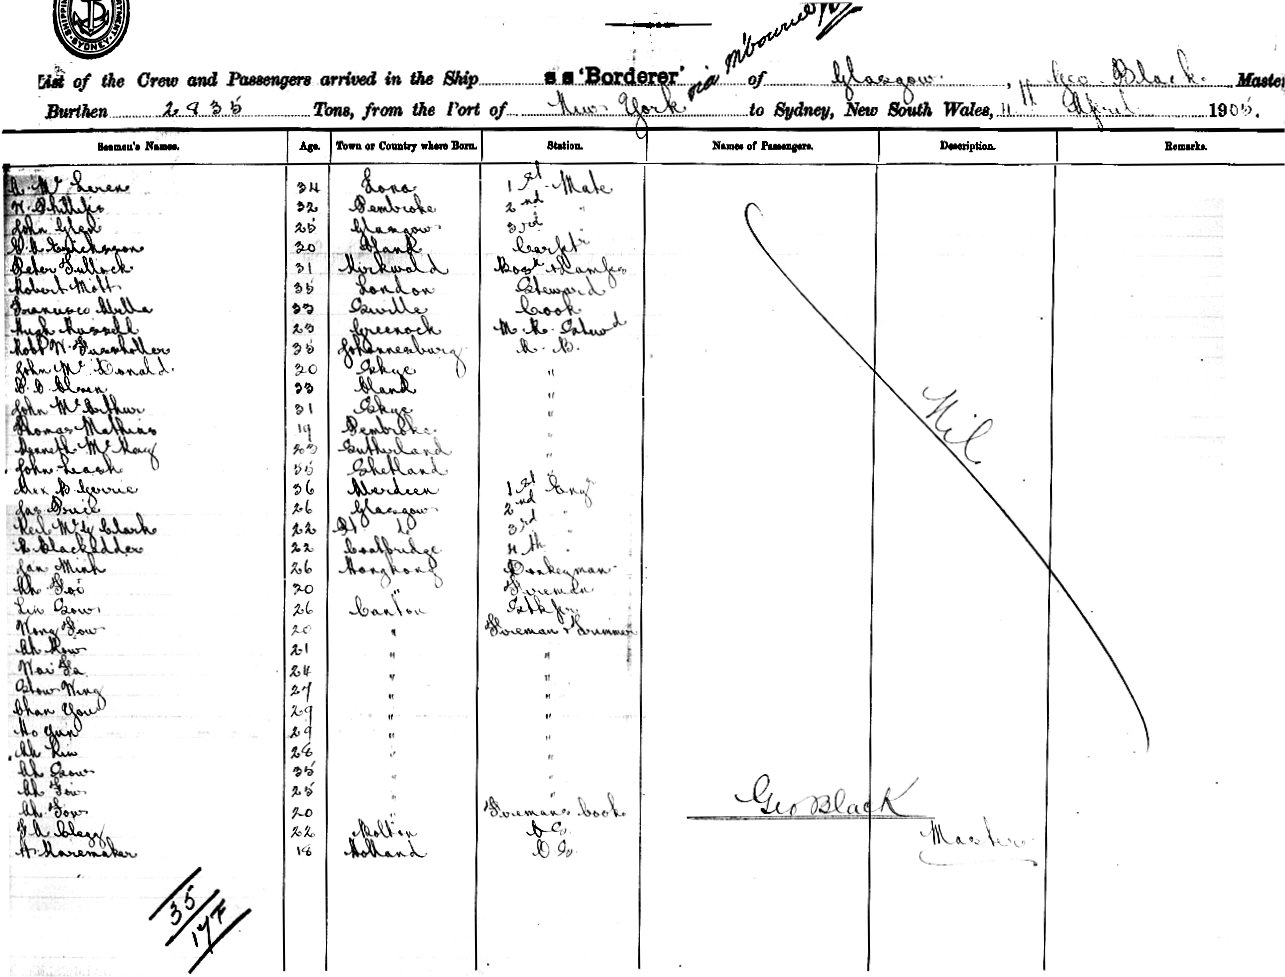 SHIPPING
SYDNEY
via M'bourne
List of the Crew and Passengers arrived in the Ship s s 'Borderer' of Glasgow, Geo. Black Master
Burthen 2835 Tons, from the Port of New York to Sydney, New South Wales, 11th April 1905.
Seamen's Names. Age. Town or Country where Born. Station. Names of Passengers. Description. Remarks.
A. Mc Laren 34 Iona 1st Mate
W. Phillips 32 Pembroke 2nd "
John Glen 25 Glasgow 3rd
Erickson 30 Åland Carptr
Peter Tullock 31 Kirkwald Bosn & Lamps
Robert Mott 35 London Steward
Francisco 33 Sville Cook
Hugh Russell 23 Greenock M. R. Steward
Robt W. 35 Johannesburg A. B.
John Mc Donald 30 Skye "
33 Åland "
John McArthur 31 Skye "
Thomas Mathias 19 Pembroke "
Kenneth McKay Sutherland "
John Leask 55 Shetland "
Alex B Gerrie 36 Aberdeen 1st Engr
Jas Price 26 Glasgow 2nd "
Neil Clark 22 3rd "
R Blackadder 22 Coatbridge 4th "
Jan Minh 26 Hongkong Donkeyman
Ah Foi 30 " Fireman
Lin Sow 26 Canton Stkpr
Wong Fow 20 " Fireman & Trimmer
Ah Kow 21 " "
Wai Fa 24 " "
Stow Wing 27 " "
Chan You 29 " "
Ho Yun 29 " "
Ah Kin 28 " "
Ah Sow 35 " "
Ah Fow 25 " "
Ah Fow 20 " Firemans Cook
F A Clegg 22 Bolton O S
H Maremaker 18 Holland O S
Nil
Geo Black
Master
35
17F